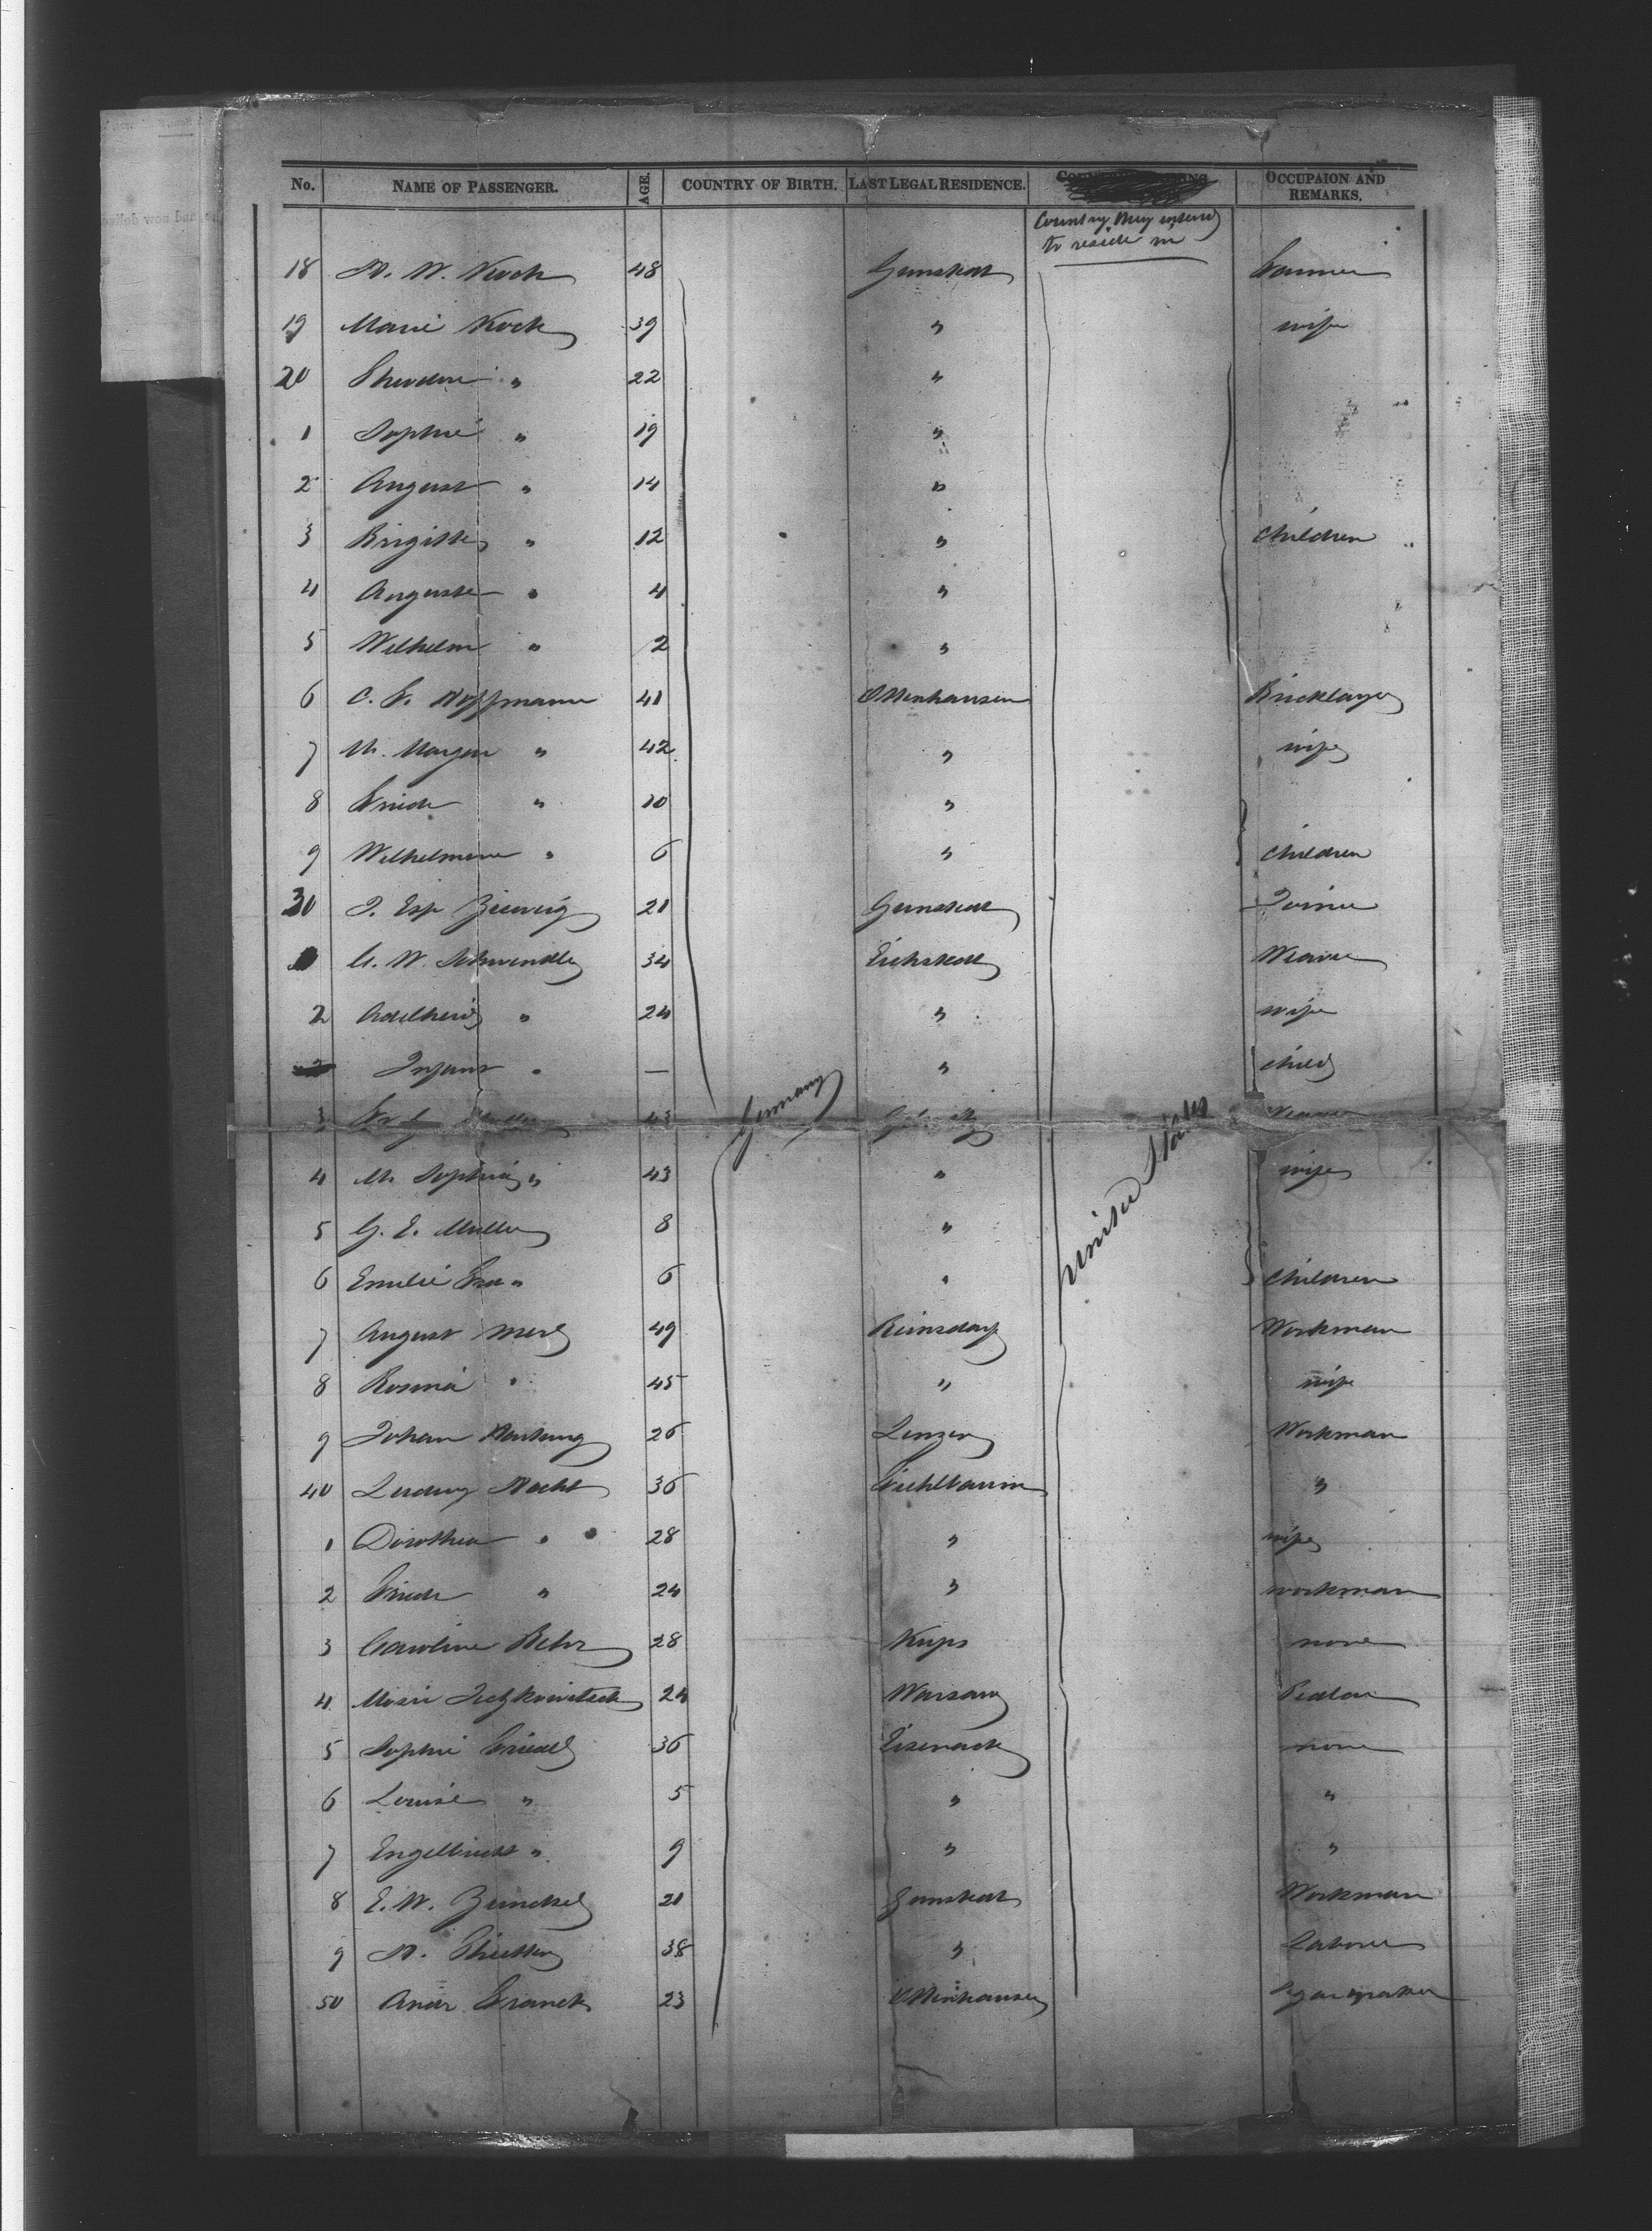 No. NAME OF PASSENGER. AGE. COUNTRY OF BIRTH. LAST LEGAL RESIDENCE. OCCUPAION AND REMARKS.
Country they intend to reside in
18 H. W. Koch 48 Farmer
19 Marie Koch 39 " wife
20 Theodore " 22 "
1 Sophie " 19 "
2 August " 14 "
3 Brigitte " 12 " Children
4 Auguste " 4 "
5 Wilhelm " 2 "
6 C. F. Hoffmann 41 Ottenhausen Bricklayer
7 M. Margar " 42 " wife
8 Friedr " 10 "
9 Wilhelmine " 6 " Children
30 21 Joiner
34 Weaver
2 Adelheid " 24 " wife
Infant " — " child
3 43 Weaver
4 M. Sophia " 43 " wife
5 G. E. Muller 8 "
6 Emilie " 6 " Children
7 August 49 Reinsdorf Workman
8 Rosina " 45 " wife
9 Johann Hartung 26 Lenzen Workman
40 Ludwig Hecht 36 "
1 Dorothea " 28 " wife
2 Friedr " 24 " workman
3 Caroline Behr 28 Kups none
4 24 Warsaw Pedlar
5 Sophie Friedel 36 Eisenach none
6 Louise " 5 " "
7 Engelbrecht " 9 " "
8 E. W. Zunckel 21 Workman
9 H. 38 " Laborer
50 Andr. Franck 23 Ottenhausen Segarmaker
Germany
United States